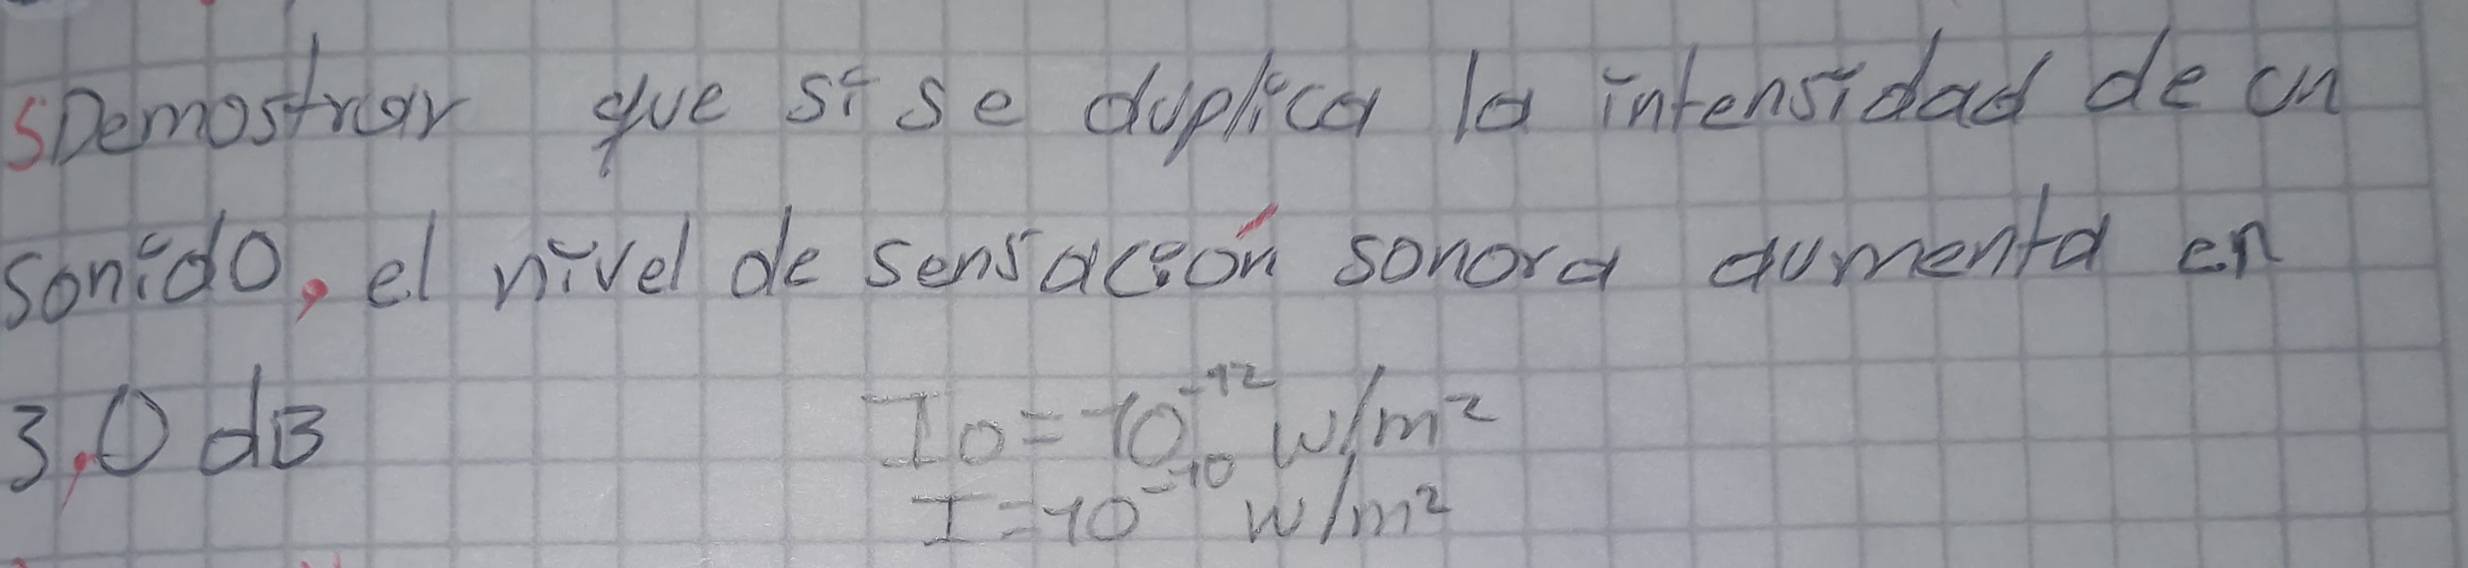 5 Demostrar que si se duplica la intensidad de un
sonido, el nivel de sensación sonora aumenta en
3,0 dB
I0 = 10^-12 W/m²
I = 10^-10 W/m²